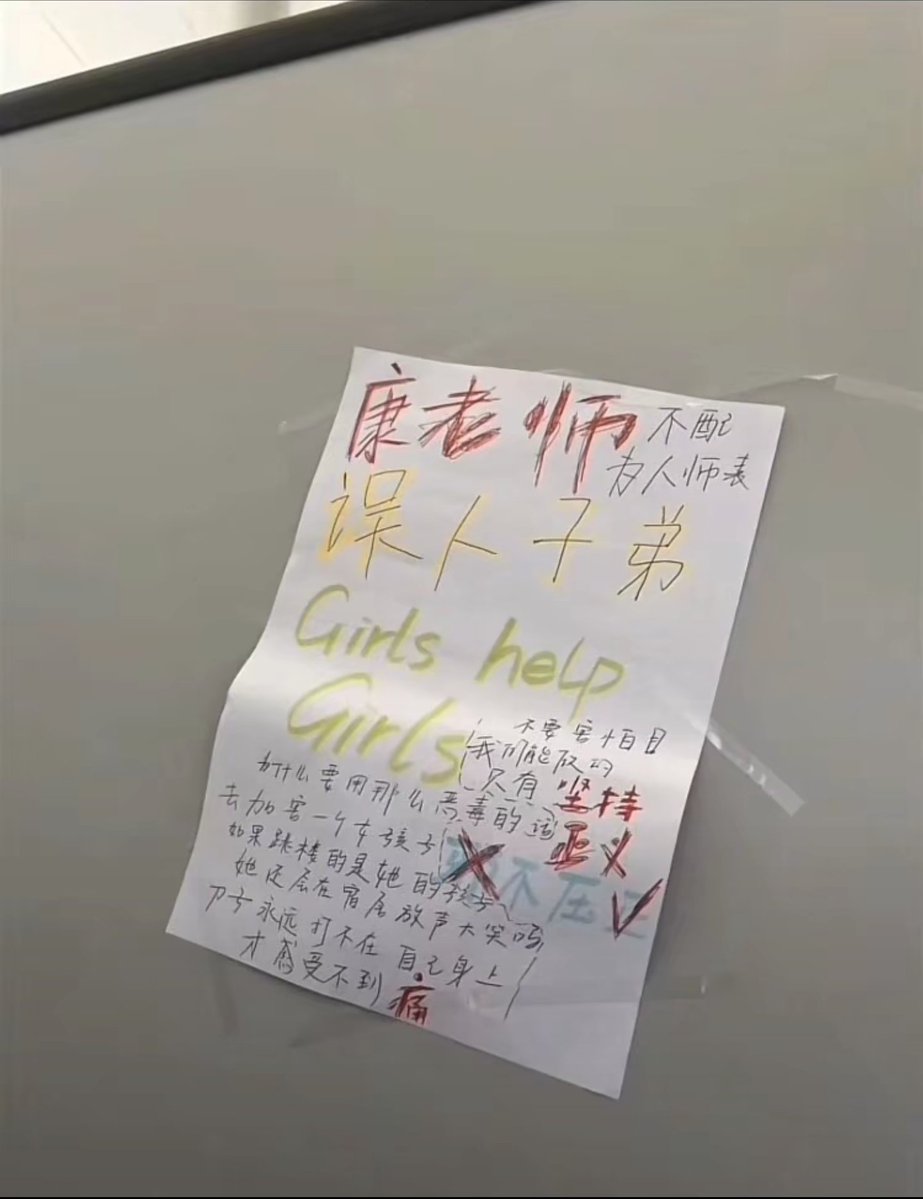 康老师 不配
为人师表
误人子弟
Girls help
Girls
不要害怕
我们能做的
只有 坚持
正义
不压正
为什么要用那么恶毒的话
去加害一个女孩子
如果跳楼的是她的孩子
她还会在宿居放声大笑吗
刀子永远打不在自己身上
才感受不到痛